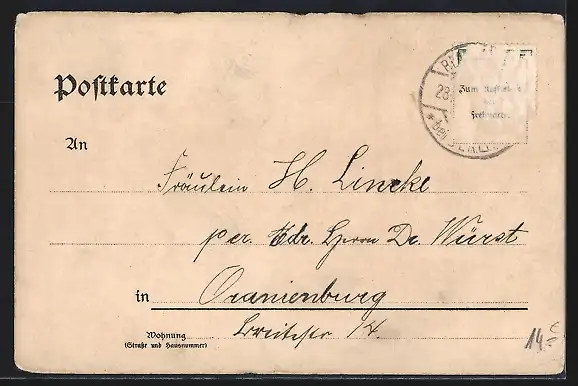 Postkarte
28.
*bei BERLIN
Zum Aufkleben
der
Freimarke.
An
Fräulein H. Lincke
per Adr. Herrn Dr. Würst
in Oranienburg
Breitestr 14.
Wohnung
(Straße und Hausnummer)
14.-